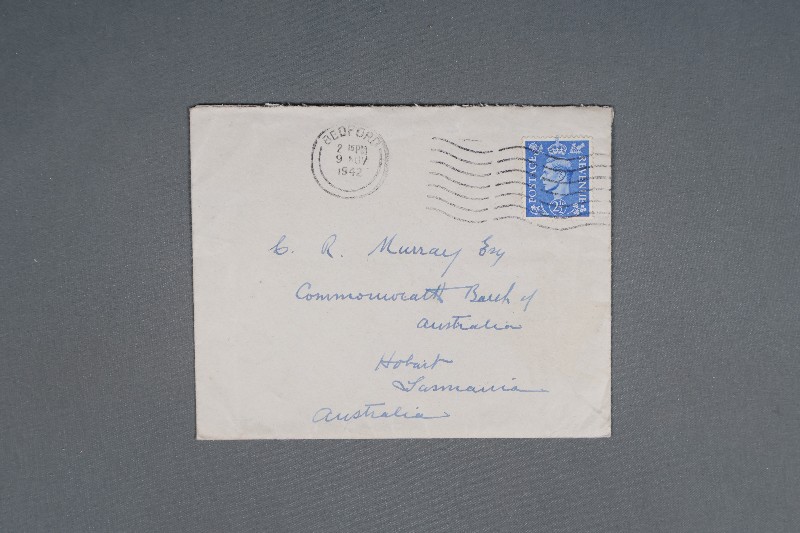 BEDFORD
2 15PM
9 NOV
1942
POSTAGE REVENUE
2½D
C. R. Murray Esq
Commonwealth Bank of
Australia
Hobart
Tasmania
Australia